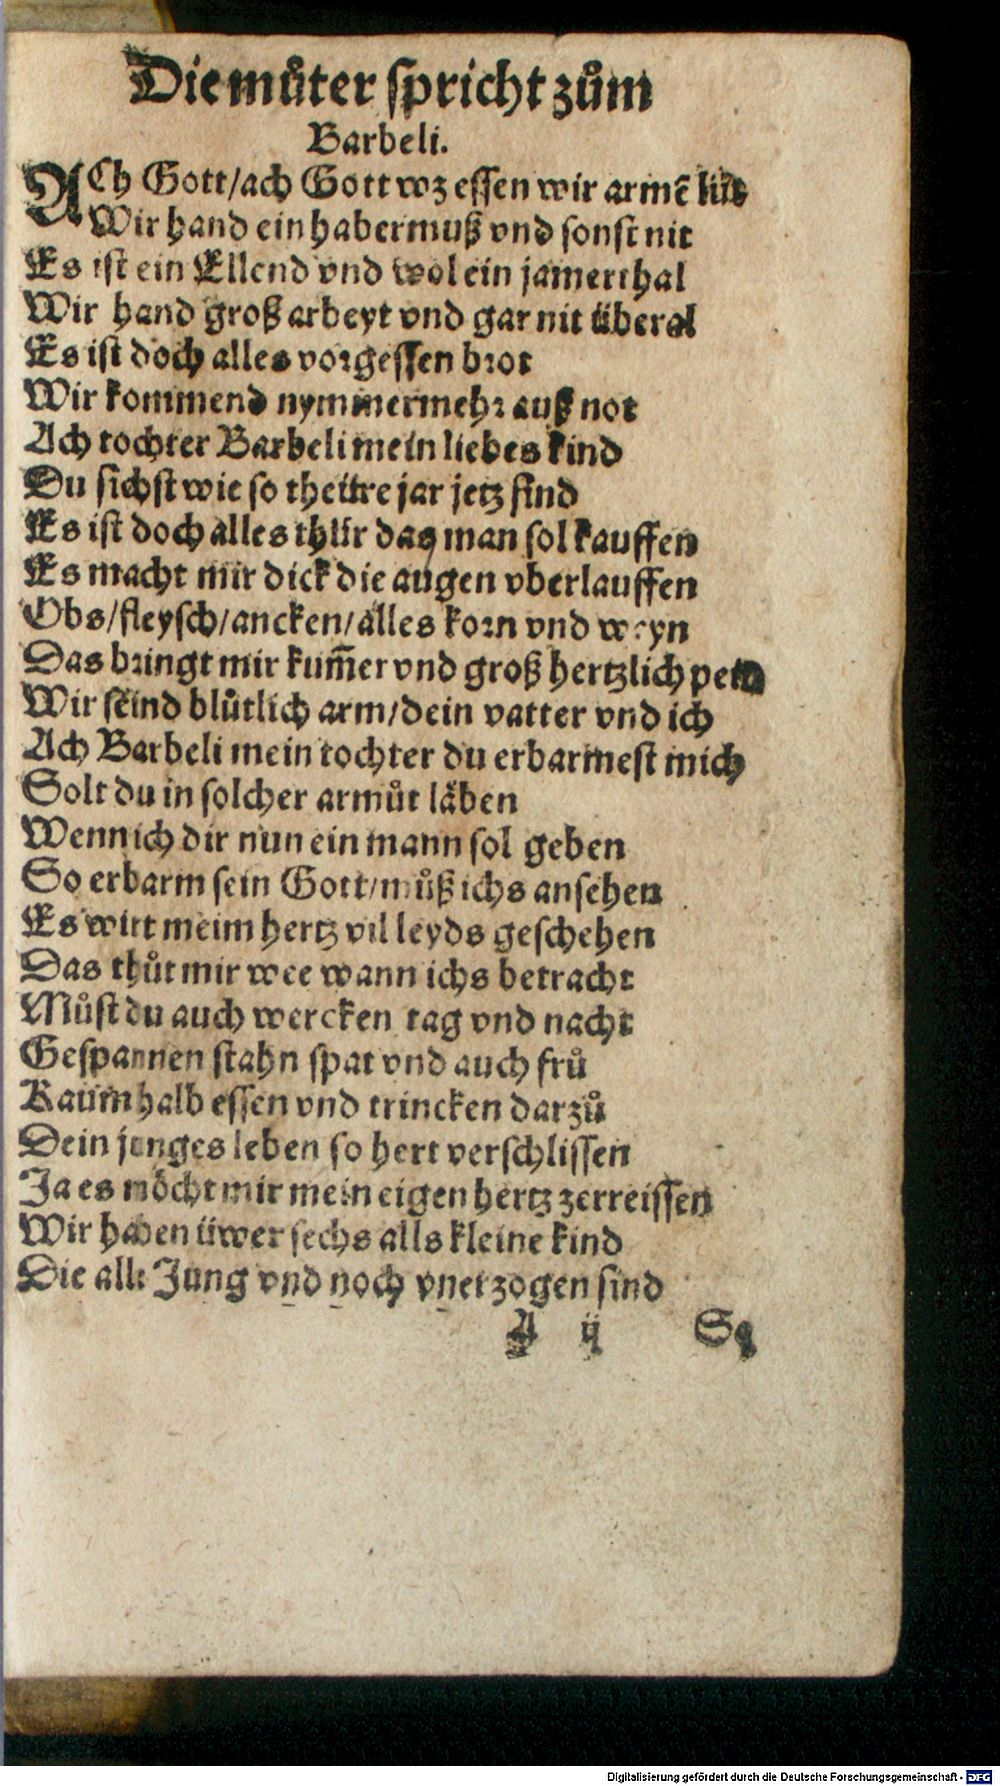 Die můter spricht zům
Barbeli.
ACh Gott/ach Gott wz essen wir armē lüt
Wir hand ein habermuß vnd sonst nit
Es ist ein Ellend vnd wol ein jamerthal
Wir hand groß arbeyt vnd gar nit überal
Es ist doch alles vorgessen brot
Wir kommend nymmermehr auß not
Ach tochter Barbeli mein liebes kind
Du sichst wie so theüre jar jetz sind
Es ist doch alles thür das man sol kauffen
Es macht mir dick die augen vberlauffen
Obs/fleysch/ancken/alles korn vnd weyn
Das bringt mir kum̄er vnd groß hertzlich pein
Wir seind blůtlich arm/dein vatter vnd ich
Ach Barbeli mein tochter du erbarmest mich
Solt du in solcher armůt läben
Wenn ich dir nun ein mann sol geben
So erbarm sein Gott/můß ichs ansehen
Es wirt meim hertz vil leyds geschehen
Das thůt mir wee wann ichs betracht
Můst du auch wercken tag vnd nacht
Gespannen stahn spat vnd auch frů
Kaum halb essen vnd trincken darzů
Dein junges leben so hert verschlissen
Ja es möcht mir mein eigen hertz zerreissen
Wir haben üwer sechs alls kleine kind
Die alle Jung vnd noch vnerzogen sind
A ij So
Digitalisierung gefördert durch die Deutsche Forschungsgemeinschaft - DFG